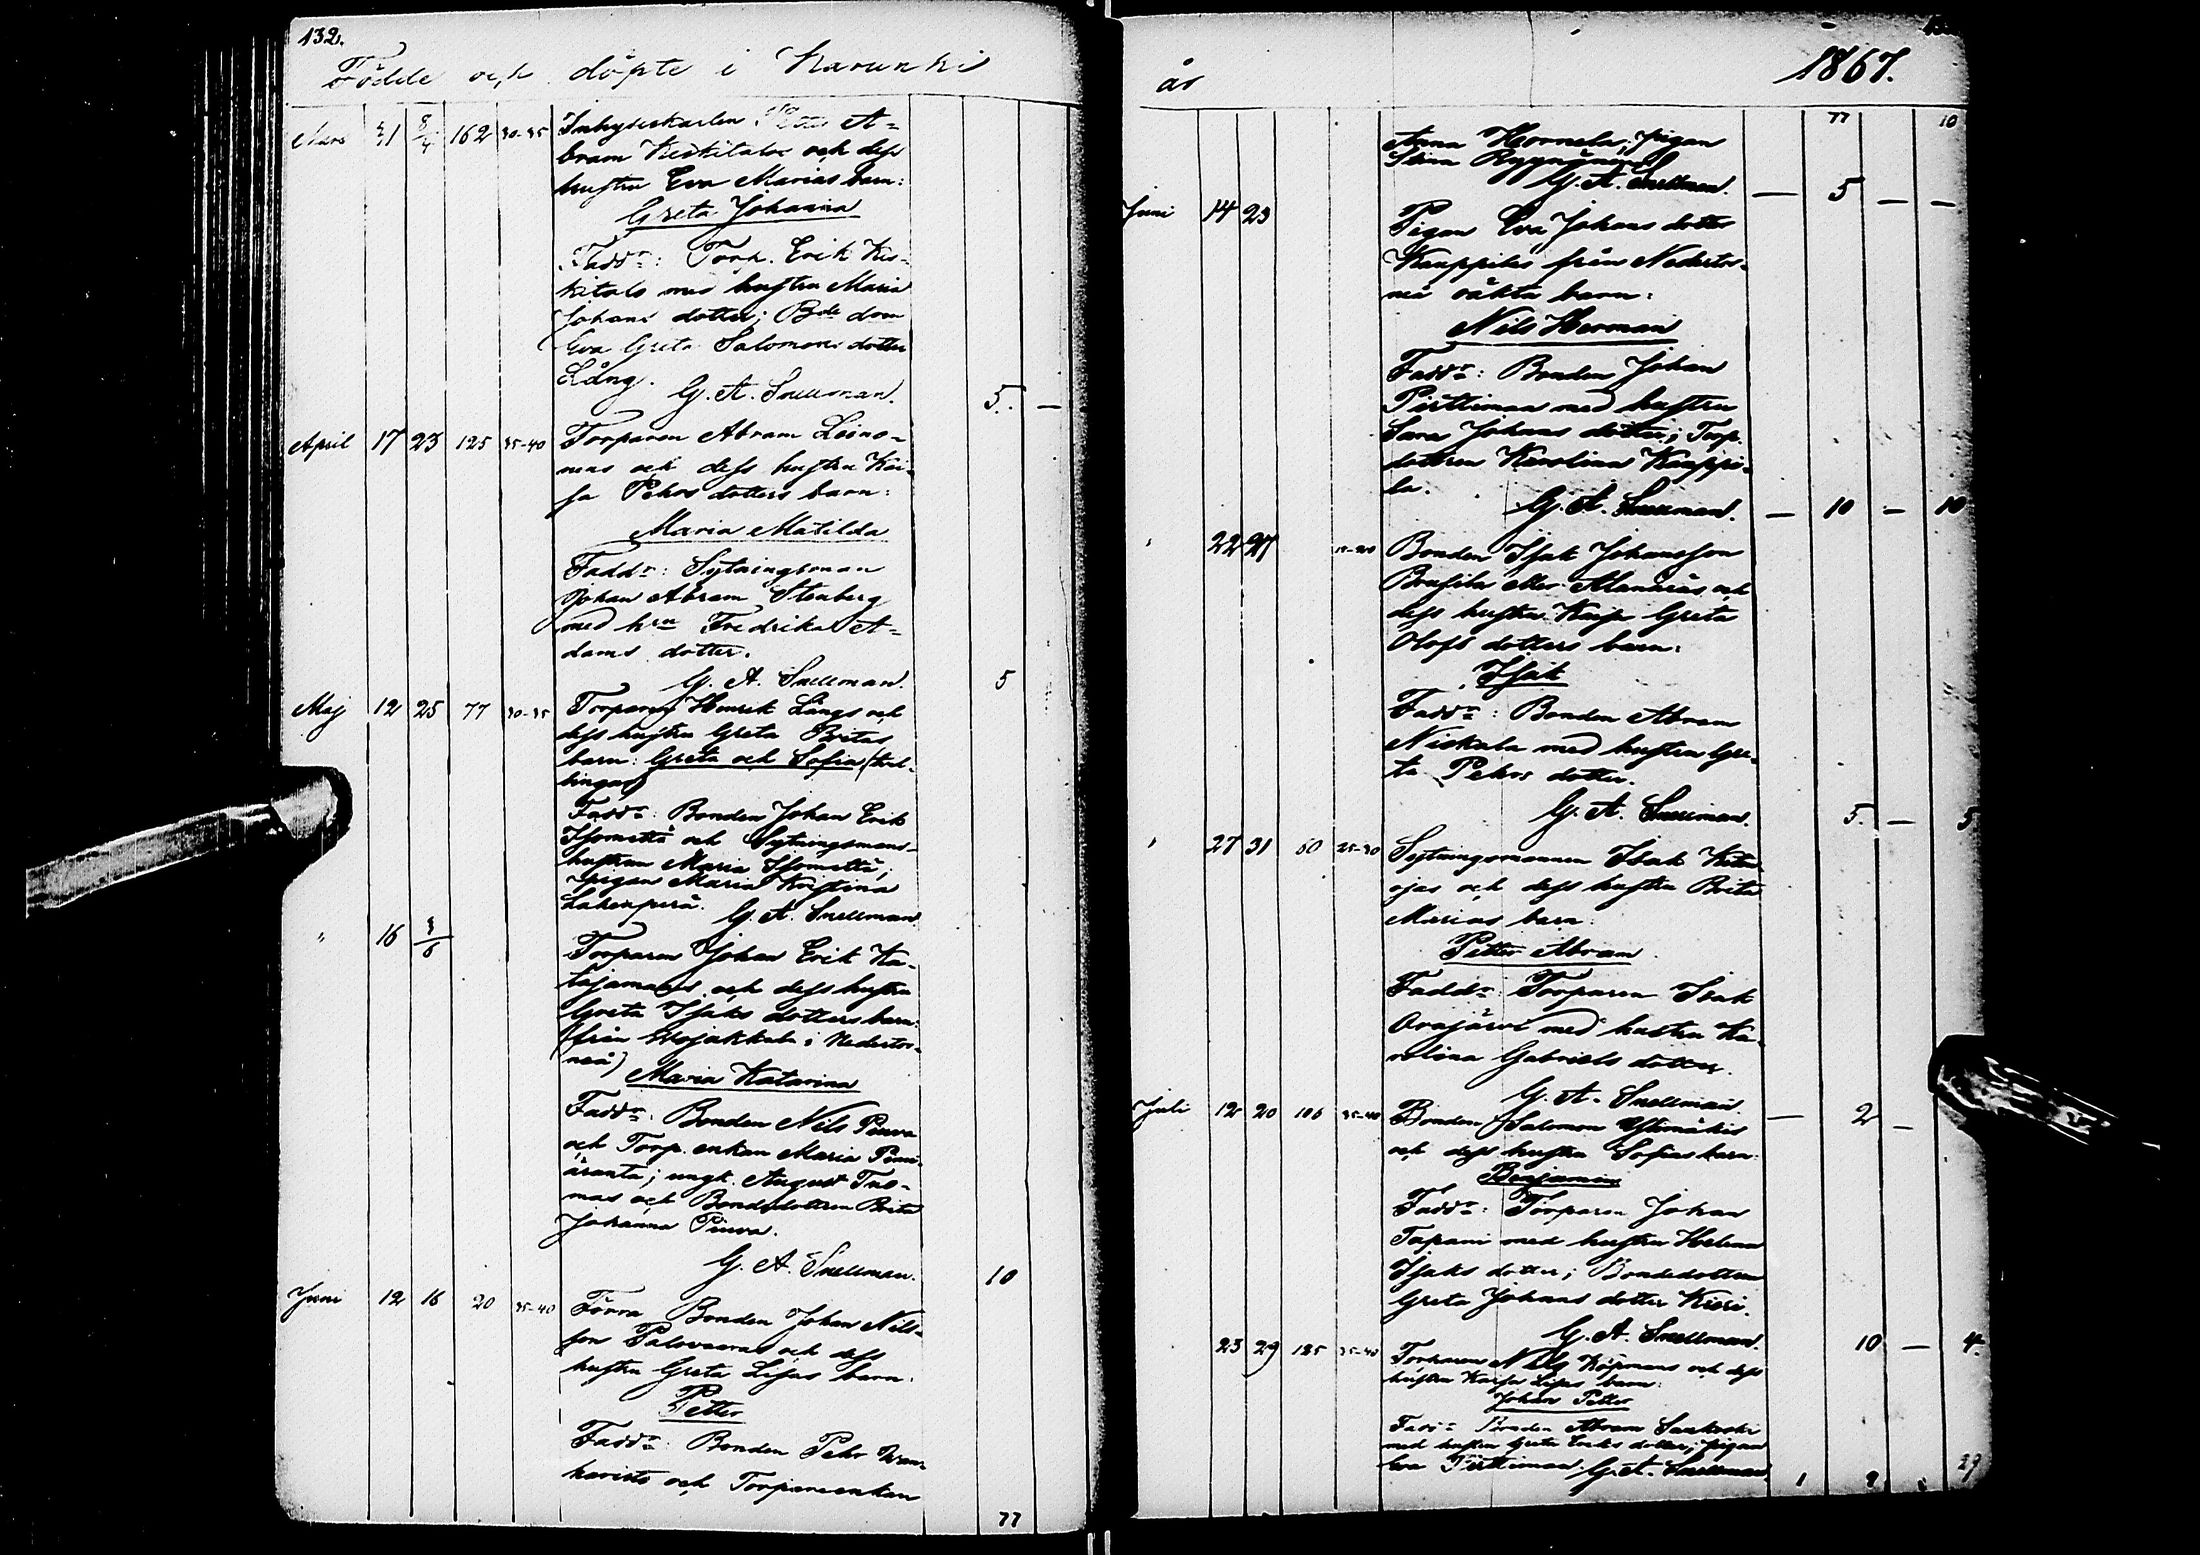 132.
Födde och döpte i Karunki
Mars 31 8/4 162 30-35 Inhyseskarlen Petter A=
bram Keskitalos och dess
hustru Eva Marias barn:
Greta Johanna
Faddr: Torp. Erik Kes=
kitalo med hustru Maria
Johans dotter; Bde dom
Eva Greta Salomons dotter
Lång.
G. A. Snellman. 5. —
April 17 23 125 35-40 Torparen Abram Leino=
nens och dess hustru Kai=
sa Pehrs dotters barn:
Maria Matilda
Faddr: Sytningsman
Johan Abram Stenberg
med hru Fredrika A=
dams dotter.
G. A. Snellman. 5
Maj 12 25 77 30-35 Torparen Henrik Långs och
dess hustru Greta Britas
barn: Greta och Sofia (tvil=
lingar)
Faddr: Bonden Johan Erik
Isometsä och Sytningsmans=
hustrun Maria Isometsä;
pigan Maria Kristina
Lakenperä. G. A. Snellman
" 16 8/6
Torparen Johan Erik Ka=
tajamaas och dess hustru
Greta Isaks dotters barn:
(från Wojakkala i Nedertor=
neå)
Maria Katarina
Faddr: Bonden Nils Pinva
och Torp. enkan Maria
äranta; ungk. August Tuo=
mas och Bondedottren Brita
Johanna Pinva.
G. A. Snellman. 10
Juni 12 16 20 35-40 Förra Bonden Johan Nils=
son Palovaaras och dess
hustru Greta Lisas barn:
Petter
Faddr: Bonden Pehr
karists och Torpareenkan
77
år 1867.
77 10
Anna Hornela; pigan
Stina
G. A. Snellman. — 5 — —
Juni 14 23 Pigan Eva Johans dotter
Kauppilas från Nedertor=
neå oäkta barn:
Nils Herman
Faddr: Bonden Johan
Pirttimaa med hustru
Sara Johans dotter; Torp.
dottren Karolina Kauppi=
la.
G. A. Snellman. — 10 — 10
" 22 27 Bonden Isak Johansson
eller Alamaas och
dess hustru Kajsa Greta
Olofs dotters barn:
Isak
Faddr: Bonden Abram
Niskala med hustru Gre=
ta Pehrs dotter.
G. A. Snellman. 5. — 5
" 27 31 60 25-30 Sytningsmannen Isak
ojas och dess hustru Brita
Marias barn:
Petter Abram
Faddr: Torparen Isak
Orajärvi med hustru Ka=
rolina Gabriels dotter.
G. A. Snellman. — 2 —
Juli 12 20 106 35-40 Bonden Salomon Ylimäkis
och dess hustru Sofias barn:
Benjamin
Faddr: Torparen Johan
Tapani med hustru Helena
Isaks dotter; Bondedottren
Greta Johans dotter Kieri.
G. A. Snellman. 10 — 4
23 29 125 35-40 Torparens Nils Köpmans och dess
hustru Kajsa Lisas barn:
Johan Petter
Faddr: Bonden Abram
med hustru Greta Eriks dotter; pigan
Eva Pirttimaa. G. A. Snellman.
29